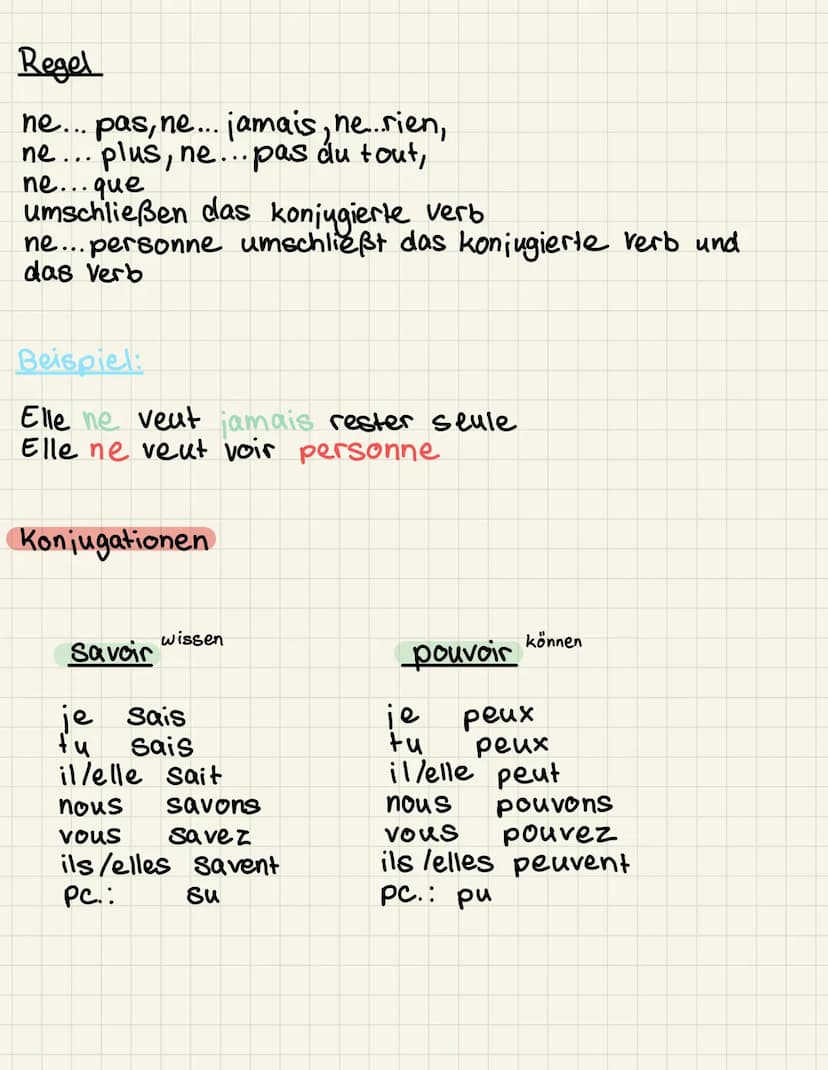 Regel
ne... pas, ne... jamais, ne...rien,
ne... plus, ne...pas du tout,
ne...que
umschließen das konjugierte verb
ne...personne umschließt das konjugierte verb und
das Verb
Beispiel:
Elle ne veut jamais rester seule
Elle ne veut voir personne
Konjugationen
savoir wissen
je sais
tu sais
il/elle sait
nous savons
vous savez
ils/elles savent
pc.: su
pouvoir können
je peux
tu peux
il/elle peut
nous pouvons
vous pouvez
ils/elles peuvent
pc.: pu